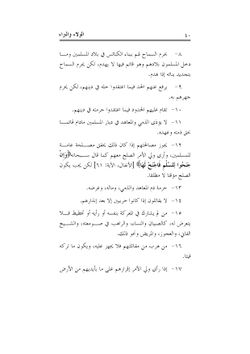 ٤٠ الولاء والبراء
٨- يحرم السماح لهم ببناء الكنائس في بلاد المسلمين وما
دخل المسلمون بلادهم وهو قائم فيها لا يهدم، لكن يحرم السماح
بتجديد بنائه إذا هدم.
٩- يرفع عنهم الحد فيما اعتقدوا حله في دينهم، لكن يحرم
جهرهم به.
١٠- تقام عليهم الحدود فيما اعتقدوا حرمته في دينهم.
١١- لا يؤذى الذمي والمعاهد في ديار المسلمين مادام قائمــا
بحق ذمته وعهده.
١٢- يجوز مصالحتهم إذا كان ذلك يحقق مصــلحة عامــة
للمسلمين، ورأى ولي الأمر الصلح معهم كما قال ســبحانه ﴿وَإِنْ
جَنَحُوا لِلسَّلْمِ فَاجْنَحْ لَهَا﴾ [الأنفال، الآية: ٦١] لكن يجب يكون
الصلح مؤقتا لا مطلقا.
١٣- حرمة دم المعاهد والذمي، وماله، وعرضه.
١٤- لا يقاتلون إذا كانوا حربيين إلا بعد إنذارهم.
١٥- من لم يشارك في المعركة بنفسه أو رأيه أو تخطيط فــلا
يتعرض له، كالصبيان والنساء والراهب في صــومعته، والشــيخ
الفاني، والعجوز، والمريض ونحو ذلك.
١٦- من هرب من مقاتلتهم فلا يجهز عليه، ويكون ما تركه
فيئا.
١٧- إذا رأى ولي الأمر إقرارهم على ما بأيديهم من الأرض